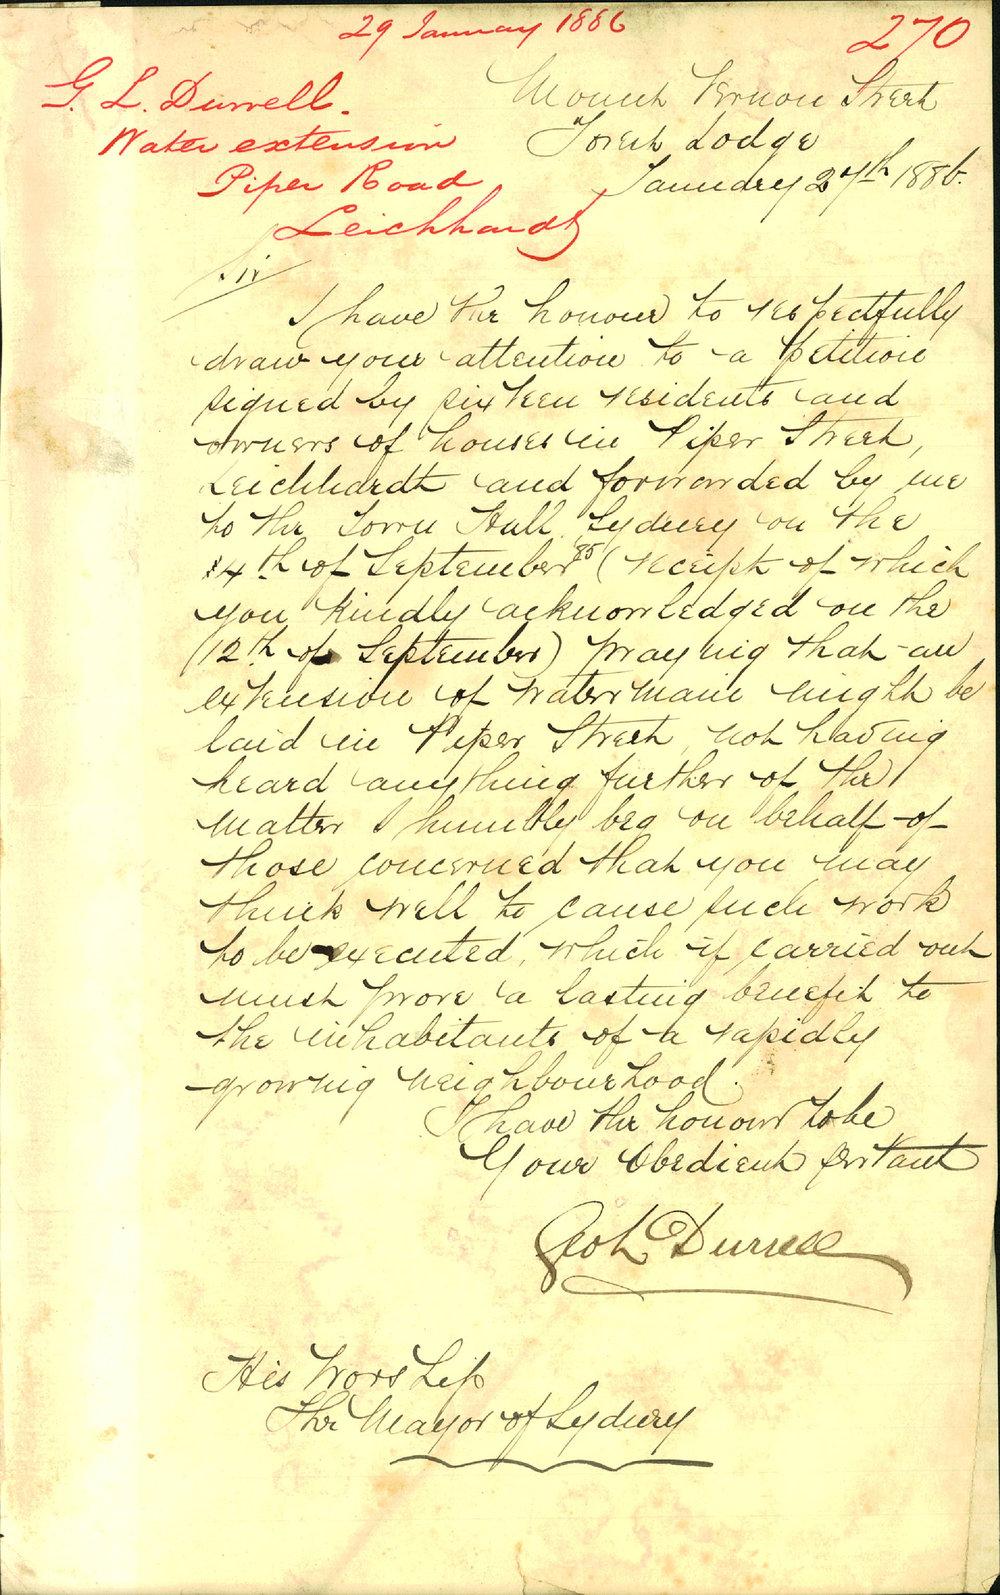 29 January 1886
270
G. L. Durrell.
Water extension
Piper Road
Leichhardt
Mount Vernon Street
Forest Lodge
January 27th 1886.
Sir
I have the honour to respectfully
draw your attention to a petition
signed by sixteen residents and
owners of houses in Piper Street,
Leichhardt and forwarded by me
to the Town Hall, Sydney on the
4th of September 85 (receipt of which
you kindly acknowledged on the
12th of September) praying that an
extension of water main might be
laid in Piper Street, not having
heard anything further of the
matter I humbly beg on behalf of
those concerned that you may
think well to cause such work
to be executed, which if carried out
must prove a lasting benefit to
the inhabitants of a rapidly
growing neighbourhood.
I have the honour to be
Your Obedient Servant
Geo L Durrell
His Worship
The Mayor of Sydney